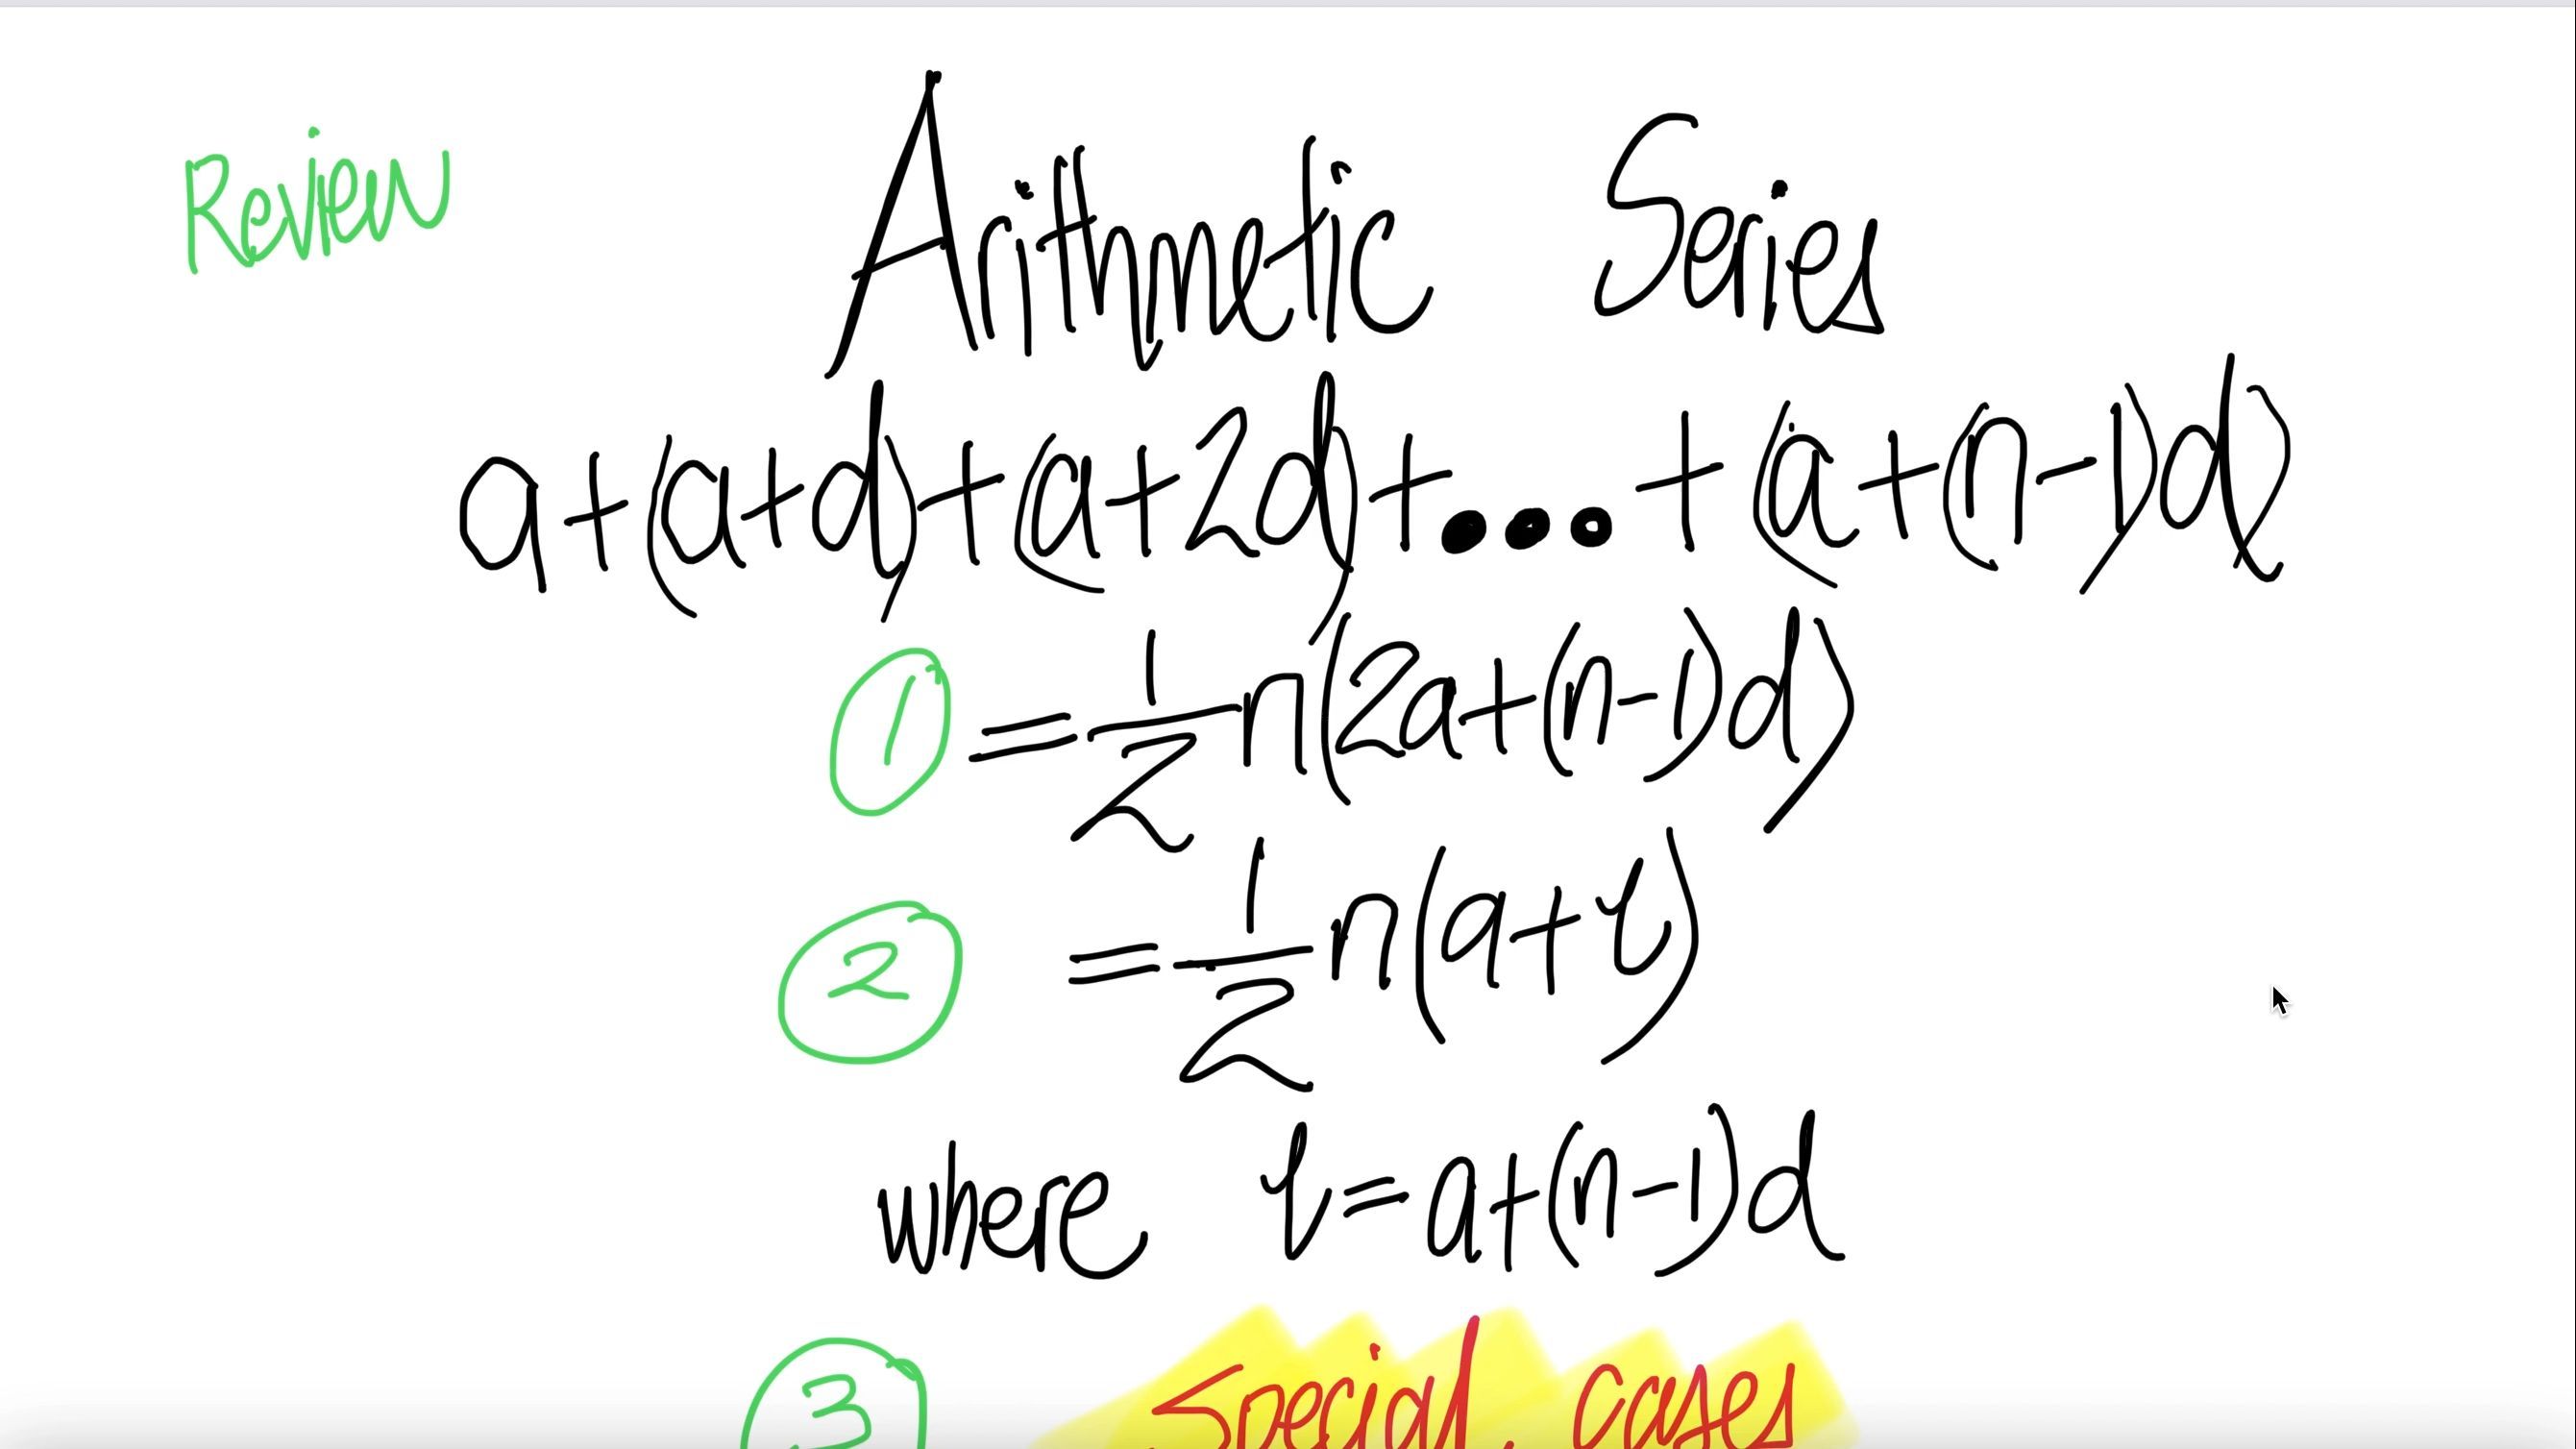 Review
Arithmetic Series
a+(a+d)+(a+2d)+...+(a+(n-1)d)
1 =1/2n(2a+(n-1)d)
2 =1/2n(a+ℓ)
where ℓ=a+(n-1)d
3 Special Cases